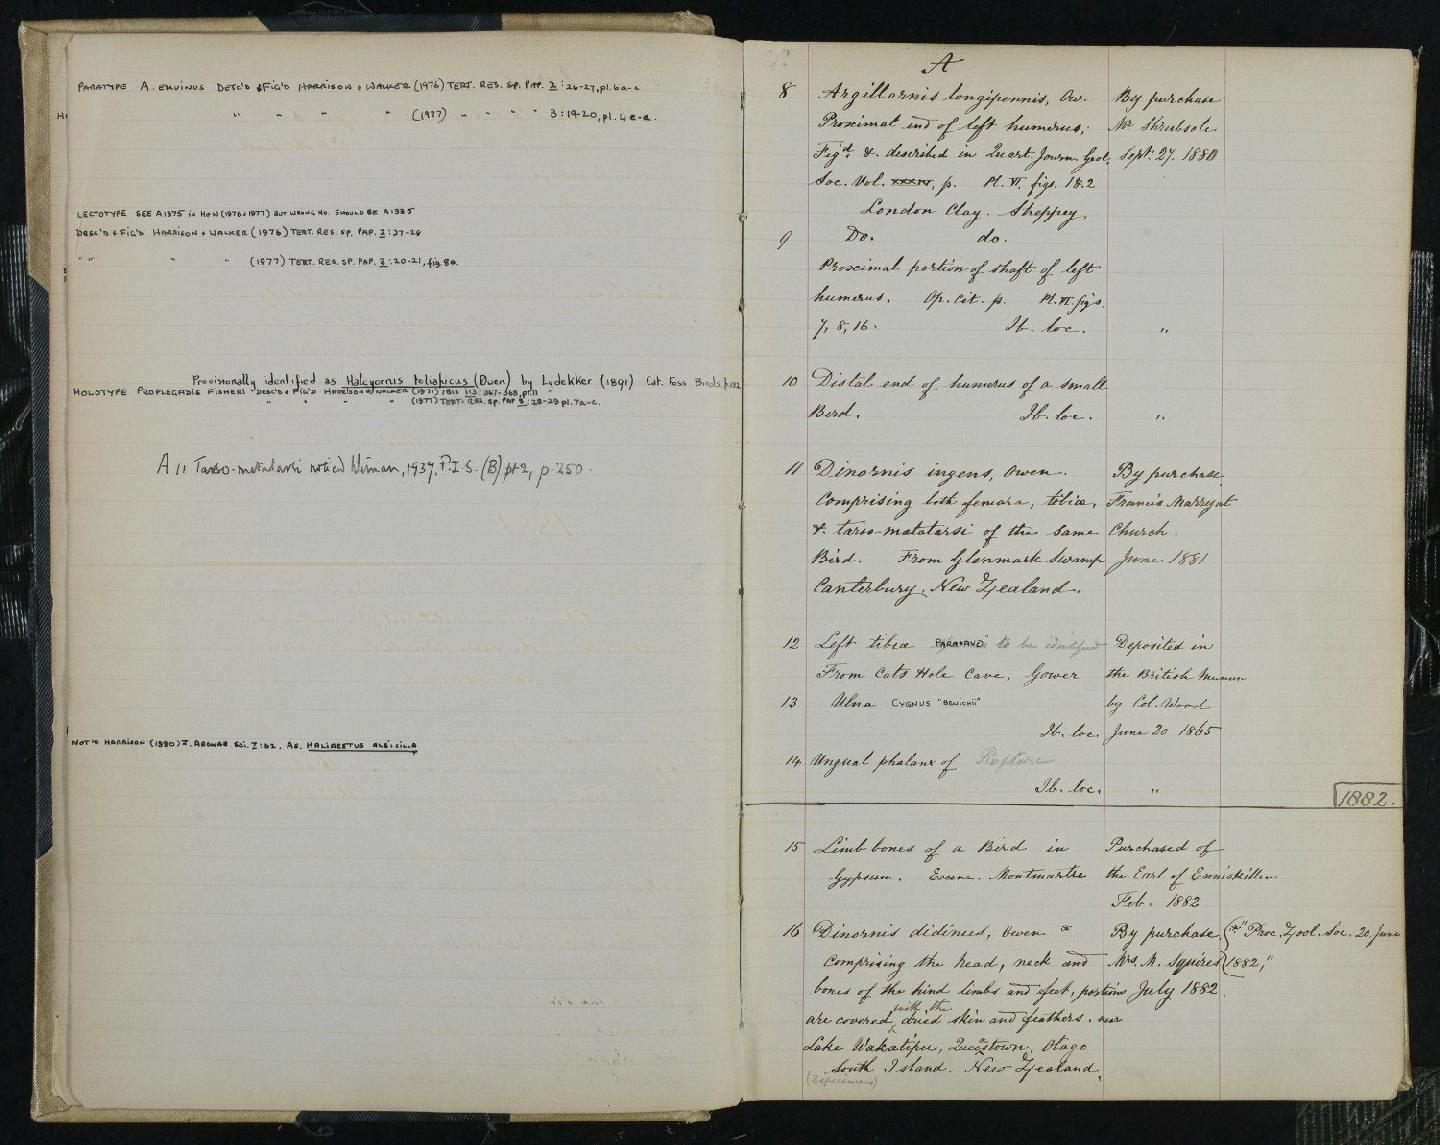 PARATYPE A. EMUINUS DESC'D & FIG'D HARRISON & WALKER (1976) TERT. RES. SP. PAP. 2:26-27, pl.6a-c
" " " " (1977) " " " " 3:19-20, pl.4e-g.
LECTOTYPE SEE A1375 in H&W (1976 & 1977) BUT WRONG NO. SHOULD BE A1335
DESC'D & FIG'D HARRISON & WALKER (1976) TERT. RES. SP. PAP. 2:27-28
" " " " (1977) TERT. RES. SP. PAP. 3:20-21, fig.8a.
Provisionally identified as Halcyornis toliapicus (Owen) by Lydekker (1891) Cat. Foss. Birds p.132
HOLOTYPE PROPLEGADIS FISHERI DESC'D & FIG'D HARRISON & WALKER (1971) IBIS 113:367-368, pl.11
" " " " (1977) TERT. RES. SP. PAP 3:28-29 pl.7a-c.
A 11 Tarso-metatarsi noticed Wiman, 1937, P.Z.S. (B) pt 2, p. 250.
NOT'D HARRISON (1980) J. ARCHAE SCI. 7:62. AS. HALIAEETUS ALBICILLA
A
8 Argillornis longipennis, Ow. By purchase
Proximal end of left humerus; Mr Shrubsole
Fig'd. & described in Quart. Journ. Geol. Sept. 27. 1880
Soc. Vol. xxxiv, p. Pl. VI. figs. 1 & 2
London Clay. Sheppey.
9 Do. do.
Proximal portion of shaft of left
humerus. Op. cit. p. Pl. VI. figs.
7, 8, 16. Ib. loc. "
10 Distal end of humerus of a small
Bird. Ib. loc. "
11 Dinornis ingens, Owen. By purchase
Comprising both femora, tibiæ, Francis Marryat
& tarso-metatarsi of the same Church
Bird. From Glenmark Swamp June 1881
Canterbury, New Zealand.
12 Left tibia to be identified Deposited in
From Cats Hole Cave, Gower the British Museum
13 Ulna CYGNUS "BEWICKII" by Col. Wood
Ib. loc. June 20 1865
14 Ungual phalanx of Raptore
Ib. loc. "
1882.
15 Limb bones of a Bird in Purchased of
Gypsum. Eocene. Montmartre the Earl of Enniskillen
Feb. 1882
16 Dinornis didinus, Owen * By purchase (*" Proc. Zool. Soc. 20 June
Comprising the head, neck and Mrs. M. Squires 1882,"
bones of the hind limbs and feet, portions July 1882
with the
are covered dried skin and feathers. near
Lake Wakatipu, Queenstown, Otago
South Island. New Zealand.
(2 specimens)